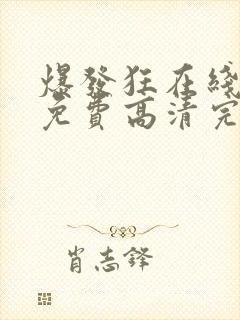 爆發狂在綫
免費高清完
肖志鋒